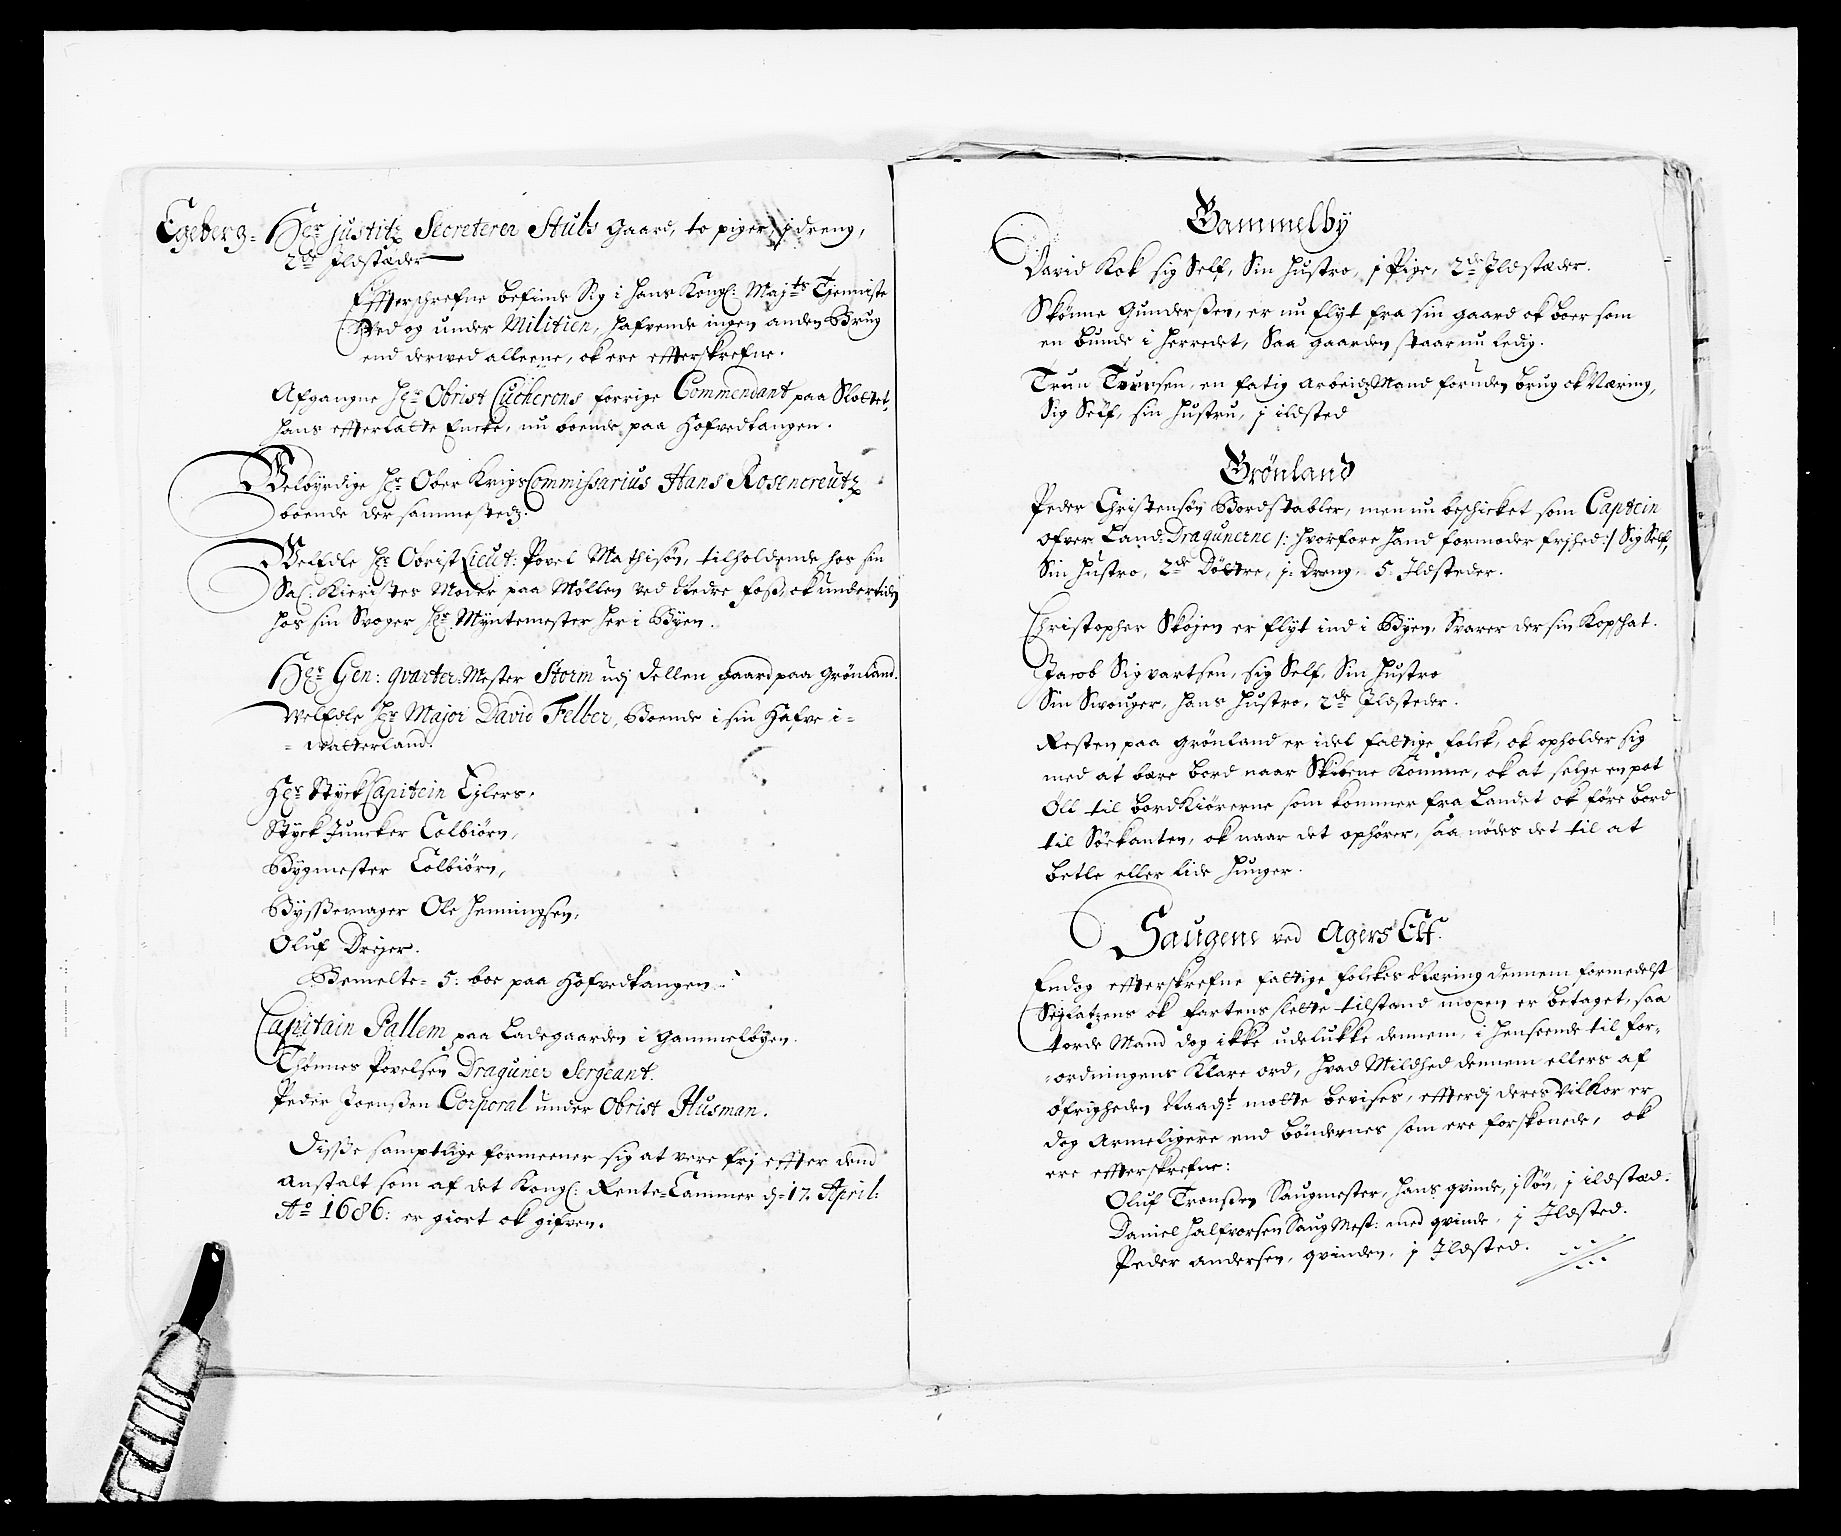 Egeberg= Hr Justitz Secreterer Stubs gaard, to piger, j dreng,
2de Ildstæder
Effterschrefne befinde Sig i hans Kongl: Majts Tienniste
Ved og under Militien, hafvende ingen anden Brug
end derwed alleene, ok ere effterskrefne.
Afgangne Hr Obrist Cucherons forrige Commendant paa Slottet,
hans effterlatte Encke, nu boende paa Hofvedtangen.
Velbyrdige Hr Ober KrigsCommissarius Hans Rosencreutz
boende der sammestedz.
Welædle Hr Obrist Lieut: Povel Mathisøn, tilholdende hos sin
Sal: Kieristes Moder paa Møllen ved Nedre foss, ok undertiden
hos sin Svoger Hr Myntemester her i Byen.
Hr Gen: qvarter Mester Storm udj Dellen gaard paa Grønland.
Welædle Hr Major David Felber, Boende i sin Hafve i=
= Watterland.
Hr Styck Capitein Ejlers,
Styck Juncker Colbiørn,
Bygmester Colbiørn,
Bysßemager Ole Henningsen,
Oluf Drejer.
Bemelte= 5: boe paa Hofvedtangen.
Capitain Pallem paa Ladegaarden i Gammelbyen.
Thønnes Povelsen Draguner Sergeant.
Peder Joensßen Corporal under Obrist Husman.
Disse samptlige formeener sig at vere frj effter dend
Anstalt som af det Kongl: Rente=Cammer d: 17. April:
Ao 1686: er giort ok gifven.
Gammelby
David Kok sig Self, Sin Hustro, j Pige, 2de Ildstæder.
Skønne Gundersßen, er nu flyt fra sin gaard ok boer som
en bunde i Herredet, Saa gaarden staar nu ledig.
Trun Truensen, en fatig Arbeidz Mand foruden brug ok Næring,
Sig Self, sin Hustru, j ildsted
Grønland
Peder Christensøn Bordstabler, men nu beskicket som Captein
ofver Land: Dragunerne /: hvorfore hand formoder frjhed :/ Sig Self,
Sin Hustro, 2de Døttre, j. Dreng, 5. Ildsteder.
Christopher Skøjen er flyt ind i Byen, Svarer der sin Kopschat.
Jacob Sigvartsen, sig Self, Sin Hustro
Sin Swouger, hans Hustro, 2de Ildsteder.
Resten paa Grønland er idel fattige folck, ok opholder sig
med at bære bord naar Skibene komme, ok at selge en pot
Øll til bordkiørerne som kommer fra Landet ok føre bord
til Søekanten, ok naar det ophører, saa nødes det til at
betle eller lide Hunger.
Saugene ved Agers Elf.
Endog effterskrefne fattige folckes Næring dennem formedelst
ok fartens slette tilstand moxen er betaget, saa
torde Mand dog ikke udelukke dennem, i henseende til for=
=ordningens klare ord, hvad Mildhed dennem ellers af
øfrigheden Naadgt motte bevises, efftterdj deres Vilkor er
dog Armeligere end bøndernes som ere forskonede, ok
ere effterskrefne:
Oluf Tronsßen Saugmester, hans qvinde, j Søn, j ildstæd.
Daniel Halfvorsen Saug Mest: med qvinde, j Ildsted.
Peder Andersen, qvinden, j Ildsted.